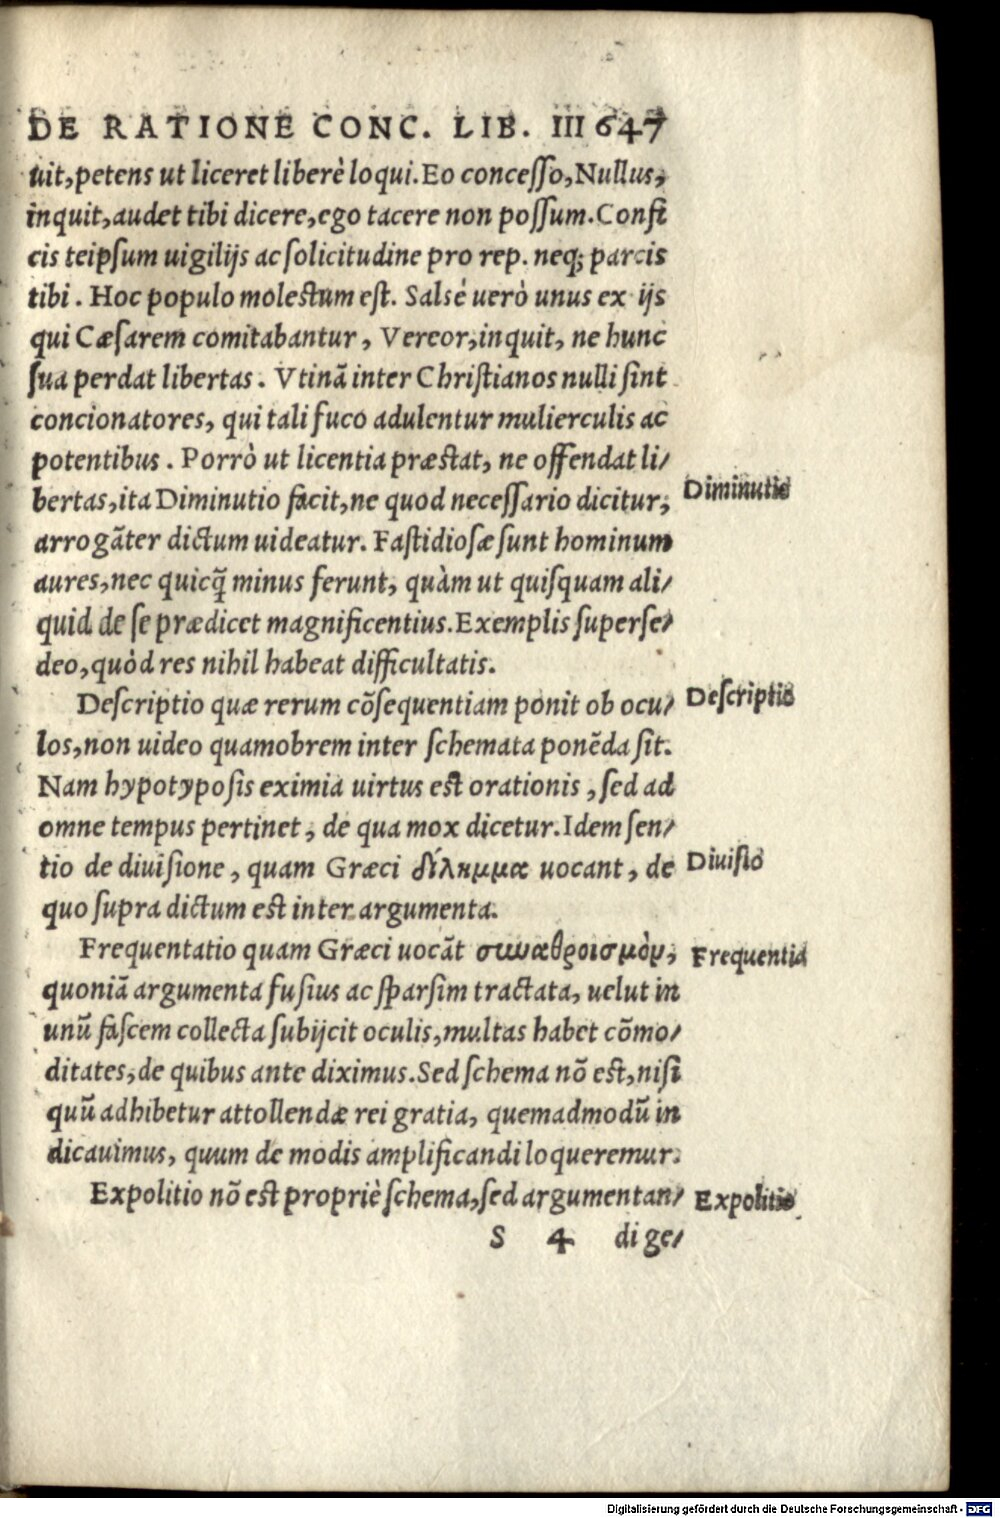 DE RATIONE CONC. LIB. III 647
uit, petens ut liceret liberè loqui. Eo concesso, Nullus,
inquit, audet tibi dicere, ego tacere non possum. Confi
cis teipsum uigilijs ac solicitudine pro rep. neq; parcis
tibi. Hoc populo molestum est. Salsè uerò unus ex ijs
qui Cæsarem comitabantur, Vereor, inquit, ne hunc
sua perdat libertas. Vtinã inter Christianos nulli sint
concionatores, qui tali fuco adulentur mulierculis ac
potentibus. Porrò ut licentia præstat, ne offendat li/
bertas, ita Diminutio facit, ne quod necessario dicitur,
Diminutio
arrogãter dictum uideatur. Fastidiosæ sunt hominum
aures, nec quicq̃ minus ferunt, quàm ut quisquam ali/
quid de se prædicet magnificentius. Exemplis superse/
deo, quòd res nihil habeat difficultatis.
Descriptio quæ rerum cõsequentiam ponit ob ocu/
Descriptio
los, non uideo quamobrem inter schemata ponẽda sit.
Nam hypotyposis eximia uirtus est orationis, sed ad
omne tempus pertinet, de qua mox dicetur. Idem sen/
tio de diuisione, quam Græci δίλημμα uocant, de
Diuisio
quo supra dictum est inter argumenta.
Frequentatio quam Græci uocãt συναθροισμὸν,
Frequentia
quoniã argumenta fusius ac sparsim tractata, uelut in
unũ fascem collecta subijcit oculis, multas habet cõmo/
ditates, de quibus ante diximus. Sed schema nõ est, nisi
quũ adhibetur attollendæ rei gratia, quemadmodũ in
dicauimus, quum de modis amplificandi loqueremur.
Expolitio nõ est propriè schema, sed argumentan/
Expolitio
S 4 di ge/
Digitalisierung gefördert durch die Deutsche Forschungsgemeinschaft - DFG